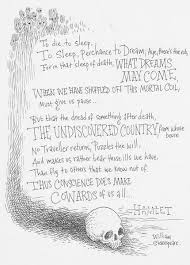 To die to sleep,
To Sleep, Perchance to Dream; Aye, there's the rub,
For in that sleep of death, WHAT DREAMS
MAY COME,
WHEN WE HAVE SHUFFLED OFF THIS MORTAL COIL,
Must give us pause...
But that the dread of something after death,
THE UNDISCOVERED COUNTRY from whose
bourn
No Traveller returns, Puzzles the will,
And makes us rather bear those ills we have,
Than fly to others that we know not of.
THUS CONSCIENCE DOES MAKE
COWARDS OF US ALL...
HAMLET
William
Shakespeare